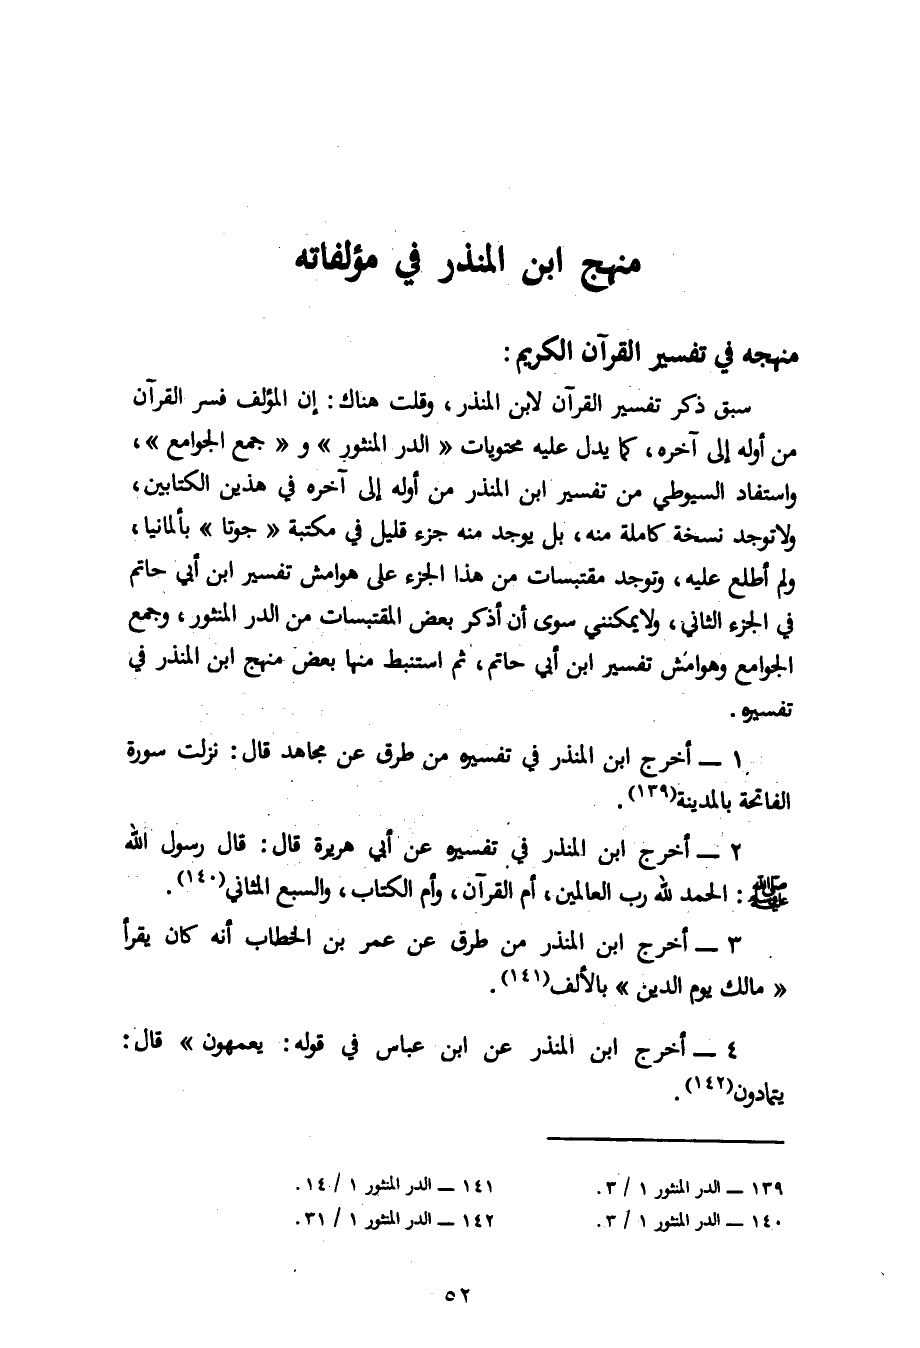 منهج ابن المنذر في مؤلفاته
منهجه في تفسير القرآن الكريم :
سبق ذكر تفسير القرآن لابن المنذر ، وقلت هناك : إن المؤلف فسر القرآن
من أوله إلى آخره ، كما يدل عليه محتويات « الدر المنثور » و « جمع الجوامع » ،
واستفاد السيوطي من تفسير ابن المنذر من أوله إلى آخره في هذين الكتابين ،
ولاتوجد نسخة كاملة منه ، بل يوجد منه جزء قليل في مكتبة « جوتا » بألمانيا ،
ولم أطلع عليه ، وتوجد مقتبسات من هذا الجزء على هوامش تفسير ابن أبي حاتم
في الجزء الثاني ، ولايمكنني سوى أن أذكر بعض المقتبسات من الدر المنثور ، وجمع
الجوامع وهوامش تفسير ابن أبي حاتم ، ثم استنبط منها بعض منهج ابن المنذر في
تفسيره .
١ ـ أخرج ابن المنذر في تفسيره من طرق عن مجاهد قال : نزلت سورة
الفاتحة بالمدينة(١٣٩) .
٢ ـ أخرج ابن المنذر في تفسيره عن أبي هريرة قال : قال رسول الله
ﷺ : الحمد لله رب العالمين ، أم القرآن ، وأم الكتاب ، والسبع المثاني(١٤٠) .
٣ ـ أخرج ابن المنذر من طرق عن عمر بن الخطاب أنه كان يقرأ
« مالك يوم الدين » بالألف(١٤١) .
٤ ـ أخرج ابن المنذر عن ابن عباس في قوله : يعمهون » قال :
يتمادون(١٤٢) .
١٣٩ ـ الدر المنثور ١ / ٣ .
١٤٠ ـ الدر المنثور ١ / ٣ .
١٤١ ـ الدر المنثور ١ / ١٤ .
١٤٢ ـ الدر المنثور ١ / ٣١ .
٥٢